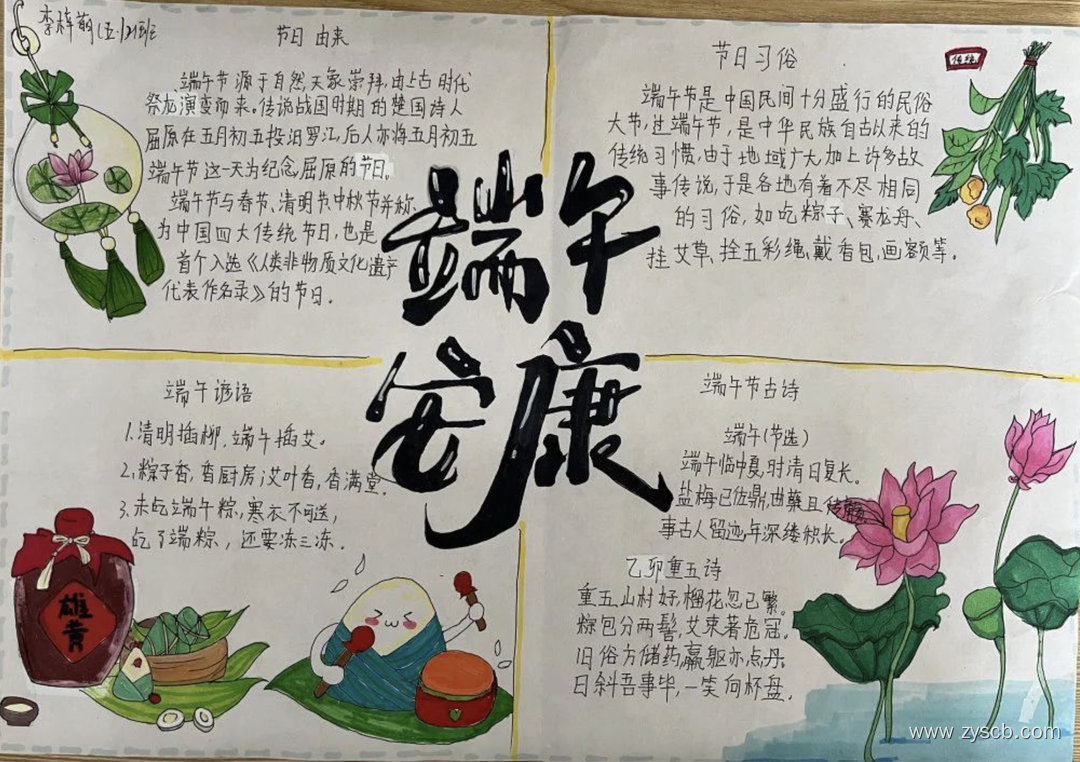 李梓萌(五·12)班
节日由来
端午节源于自然天象崇拜,由上古时代
祭龙演变而来。传说战国时期的楚国诗人
屈原在五月初五投汨罗江,后人亦将五月初五
端午节这一天为纪念屈原的节日。
端午节与春节、清明节中秋节并称
为中国四大传统节日,也是
首个入选《人类非物质文化遗产
代表作名录》的节日.
节日习俗
传统
端午节是中国民间十分盛行的民俗
大节,过端午节,是中华民族自古以来的
传统习惯,由于地域广大,加上许多故
事传说,于是各地有着不尽相同
的习俗,如吃粽子、赛龙舟、
挂艾草,拴五彩绳,戴香包,画额等。
端午
安康
端午谚语
1.清明插柳,端午插艾。
2.粽子香,香厨房;艾叶香,香满堂.
3.未吃端午粽,寒衣不可送,
吃了端粽,还要冻三冻.
雄黄
端午节古诗
端午(节选)
端午临中夏,时清日复长。
盐梅已佐鼎,曲糵且传觞
事古人留迹,年深缕积长。
乙卯重五诗
重五山村好,榴花忽已繁。
粽包分两髻,艾束著危冠。
旧俗方储药,羸躯亦点丹.
日斜吾事毕,一笑向杯盘.
www.zyscb.com